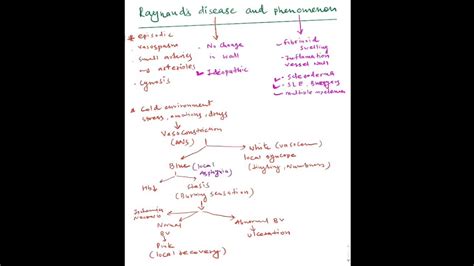 Raynaud's disease and phenomenon
* episodic
* vasospasm
* Small arteries
→ arterioles
* cynosis
- No change
in walls
✓ Ideopathic
✓ Fibrinoid
Swelling
- Inflammation
vessel walls
- Scleroderma
✓ SLE, Buergers
✓ multiple myeloma
* Cold environment
stress, emotions, drugs
Vasoconstriction
(ANS)
White (vasocom)
local syncope
(tingling, Numbness)
Blue (local
Asphyxia)
Hb↓
Stasis
(Burning sensation)
Ischemia
Necrosis
Normal
BV
Pink
(local recovery)
Abnormal BV
ulceration